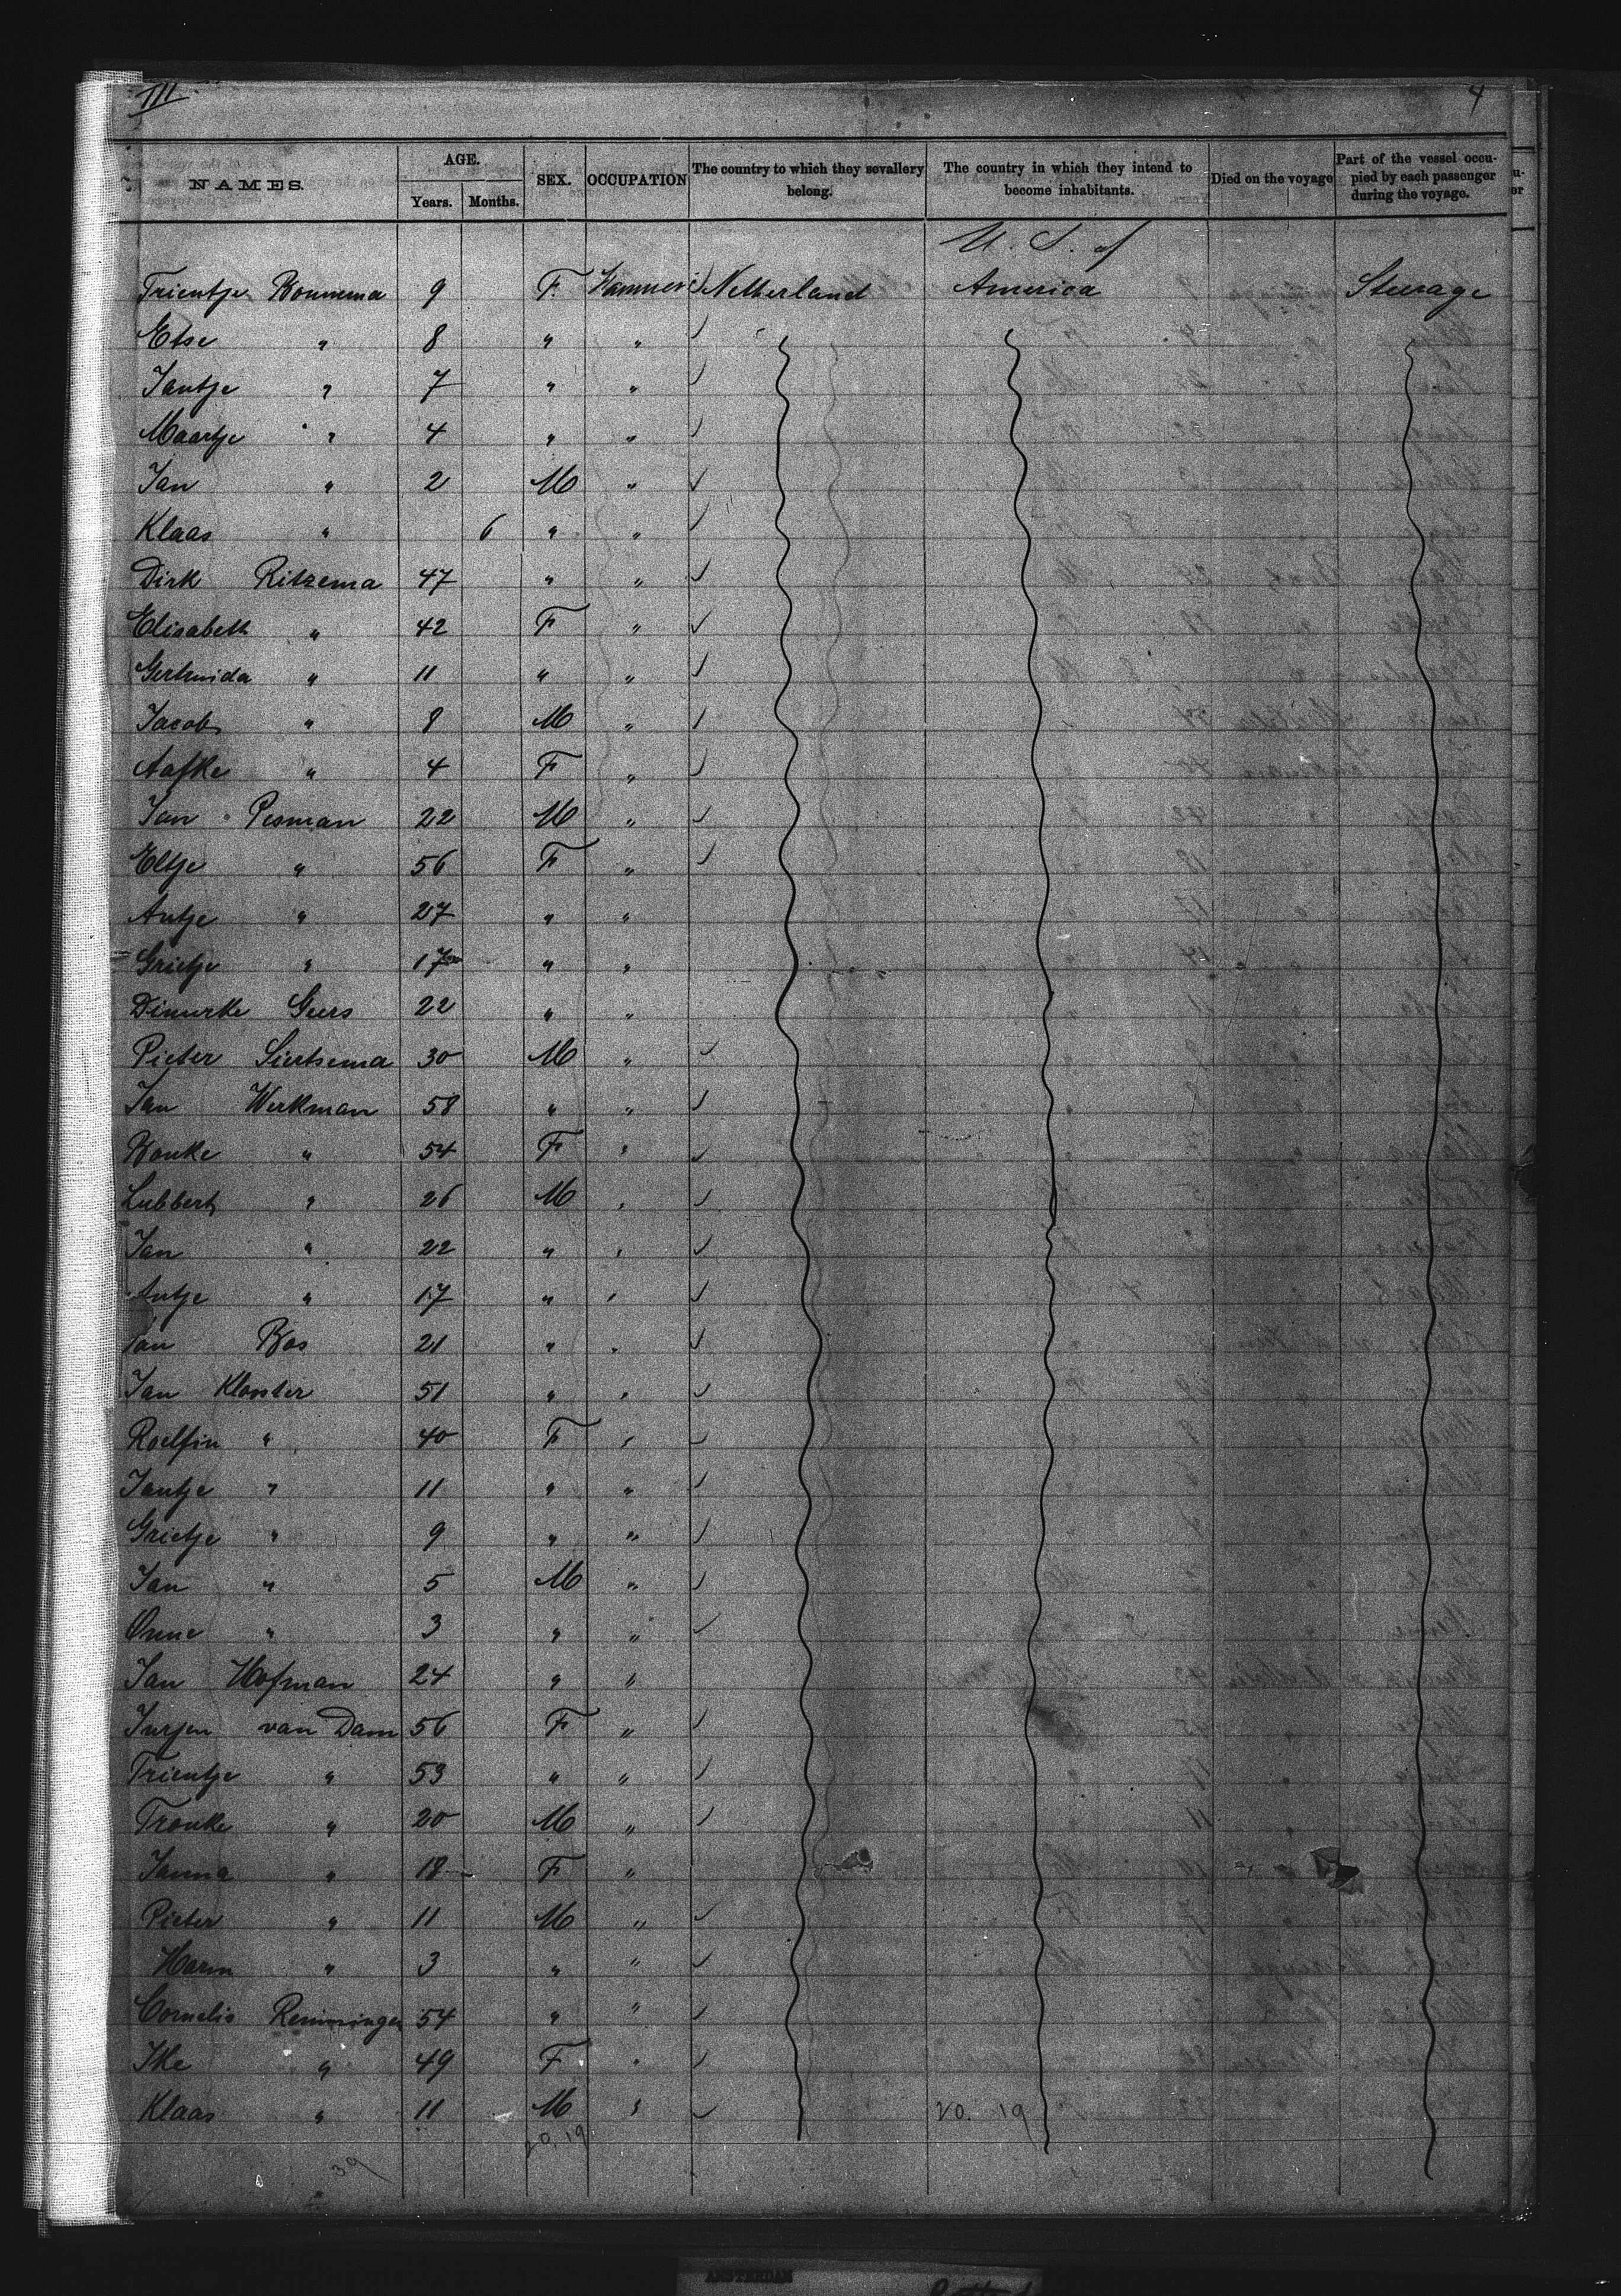 III 4
NAMES. AGE. Years. Months. SEX. OCCUPATION The country to which they sevallery belong. The country in which they intend to become inhabitants. Died on the voyage Part of the vessel occu-pied by each passenger during the voyage.
U. S. of
Trientje Bouwema 9 F. Netherland America Steerage
Etse " 8 " "
Jantje " 7 " "
Maartje " 4 " "
Jan " 2 M "
Klaas " 6 " "
Dirk Ritzema 47 " "
Elisabeth " 42 F "
Gertruida " 11 " "
Jacob " 8 M "
Aafke " 4 F "
Jan Pesman 22 M "
Eltje " 56 F "
Antje " 27 " "
Grietje " 17 " "
Geers 22 " "
Pieter Siertsema 30 M "
Jan Werkman 58 " "
Bouke " 54 F "
Lubbert " 26 M "
Jan " 22 " "
Antje " 17 " "
Jan Bos 21 " "
Jan Klooster 51 " "
Roelfin " 40 F "
Jantje " 11 " "
Grietje " 9 " "
Jan " 5 M "
Onne " 3 " "
Jan Hofman 24 " "
Jurjen van Dam 56 F "
Trientje " 53 " "
Frouke " 20 M "
Janna " 18 F "
Pieter " 11 M "
Harm " 3 " "
Cornelis Remminga 54 " "
Ike " 49 F "
Klaas " 11 M " 20. 19
20. 19
39
AMSTERDAM